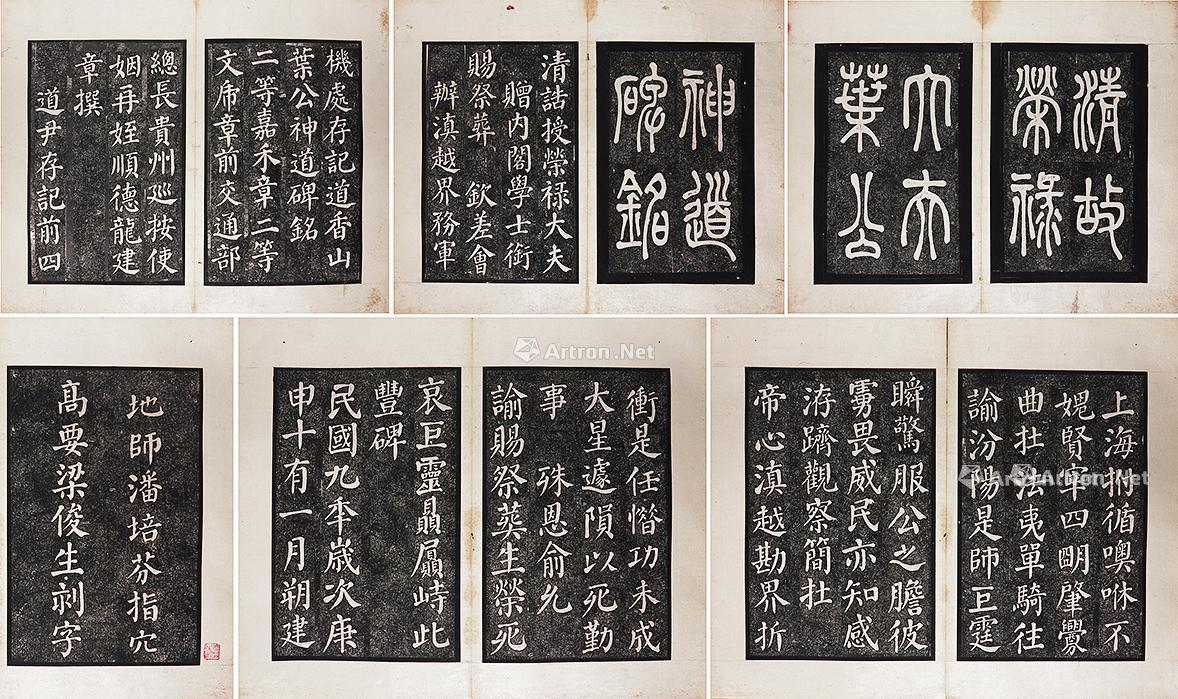 清故
榮祿
大夫
葉公
神道
碑銘
清誥授榮祿大夫
贈內閣學士銜
賜祭葬 欽差會
辦滇越界務軍
機處存記道香山
葉公神道碑銘
二等嘉禾章二等
文虎章前交通部
總長貴州巡按使
姻再姪順德龍建
章撰
道尹存記前四
上海拊循噢咻不
媲賢宰四明肇釁
曲扗法夷單騎往
諭汾陽是師巨霆
瞬驚服公之膽彼
虜畏威民亦知感
洊躋觀察簡扗
帝心滇越勘界折
衝是任憯功未成
大星遽隕以死勤
事 殊恩俞允
諭賜祭葬生榮死
哀巨靈贔屭峙此
豐碑
民國九年歲次庚
申十有一月朔建
地師潘培芬指穴
高要梁俊生刻字
Artron.Net
Artron.Net
Artron.Net